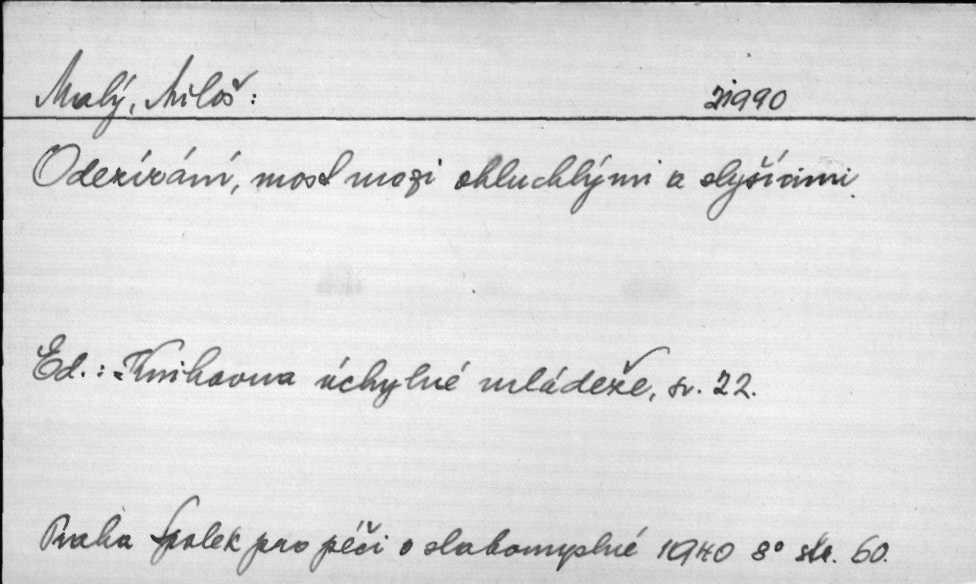 Malý, Miloš: 21990
Odezírání, most mezi ohluchlými a slyšícími.
Ed.: Knihovna úchylné mládeže, sv. 22.
Praha Spolek pro péči o slabomyslné 1940 8° str. 60.